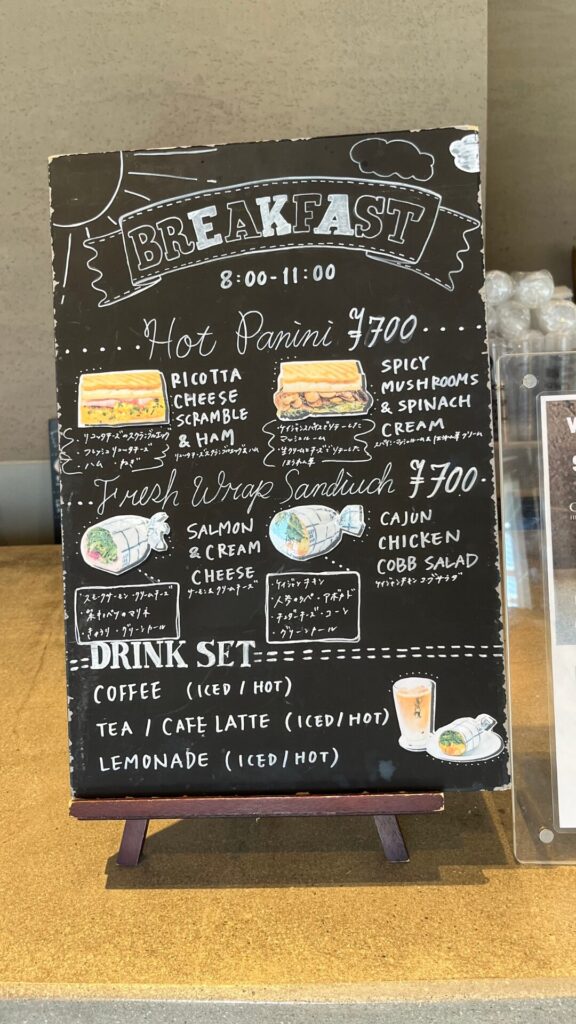 BREAKFAST
8:00-11:00
Hot Panini ¥700
RICOTTA
CHEESE
SCRAMBLE
& HAM
リコッタチーズスクランブルエッグ&ハム
・リコッタチーズのスクランブルエッグ
・フレッシュリコッタチーズ
・ハム ・ねぎ
SPICY
MUSHROOMS
& SPINACH
CREAM
スパイシーマッシュルーム&ほうれん草クリーム
・ケイジャンスパイスでソテーした
マッシュルーム
・生クリームとチーズでソテーした
ほうれん草
Fresh Wrap Sandwich ¥700
SALMON
& CREAM
CHEESE
サーモン&クリームチーズ
・スモークサーモン・クリームチーズ
・紫キャベツのマリネ
・きゅうり・グリーンケール
CAJUN
CHICKEN
COBB SALAD
ケイジャンチキンコブサラダ
・ケイジャンチキン
・人参のラペ・アボカド
・チェダーチーズ・コーン
・グリーンケール
DRINK SET
COFFEE (ICED / HOT)
TEA / CAFE LATTE (ICED/HOT)
LEMONADE (ICED / HOT)